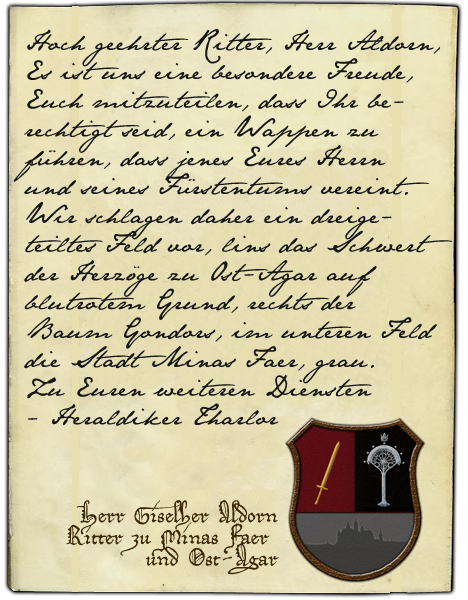 Hoch geehrter Ritter, Herr Aldorn,
Es ist uns eine besondere Freude,
Euch mitzuteilen, dass Ihr be-
rechtigt seid, ein Wappen zu
führen, dass jenes Eures Herrn
und seines Fürstentums vereint.
Wir schlagen daher ein dreige-
teiltes Feld vor, lins das Schwert
der Herzöge zu Ost-Agar auf
blutrotem Grund, rechts der
Baum Gondors, im unteren Feld
die Stadt Minas Faer, grau.
Zu Euren weiteren Diensten
- Heraldiker Tharlor
Herr Giselher Aldorn
Ritter zu Minas Faer
und Ost-Agar